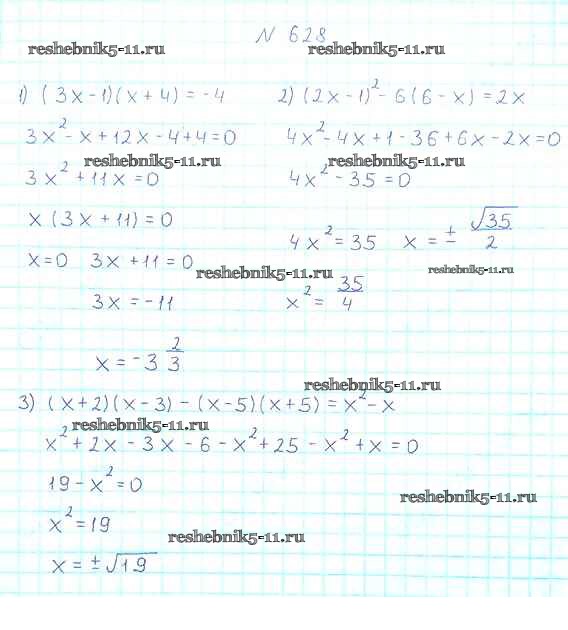 № 628
reshebnik5-11.ru reshebnik5-11.ru
1) (3x-1)(x+4) = -4
3x²-x+12x-4+4=0
reshebnik5-11.ru
3x²+11x=0
x(3x+11)=0
x=0 3x+11=0
reshebnik5-11.ru
3x=-11
x=-3 2/3
2) (2x-1)²-6(6-x)=2x
4x²-4x+1-36+6x-2x=0
reshebnik5-11.ru
4x²-35=0
4x²=35 x=±√35/2
reshebnik5-11.ru
x²=35/4
reshebnik5-11.ru
3) (x+2)(x-3)-(x-5)(x+5)=x²-x
reshebnik5-11.ru
x²+2x-3x-6-x²+25-x²+x=0
19-x²=0
reshebnik5-11.ru
x²=19
reshebnik5-11.ru
x=±√19